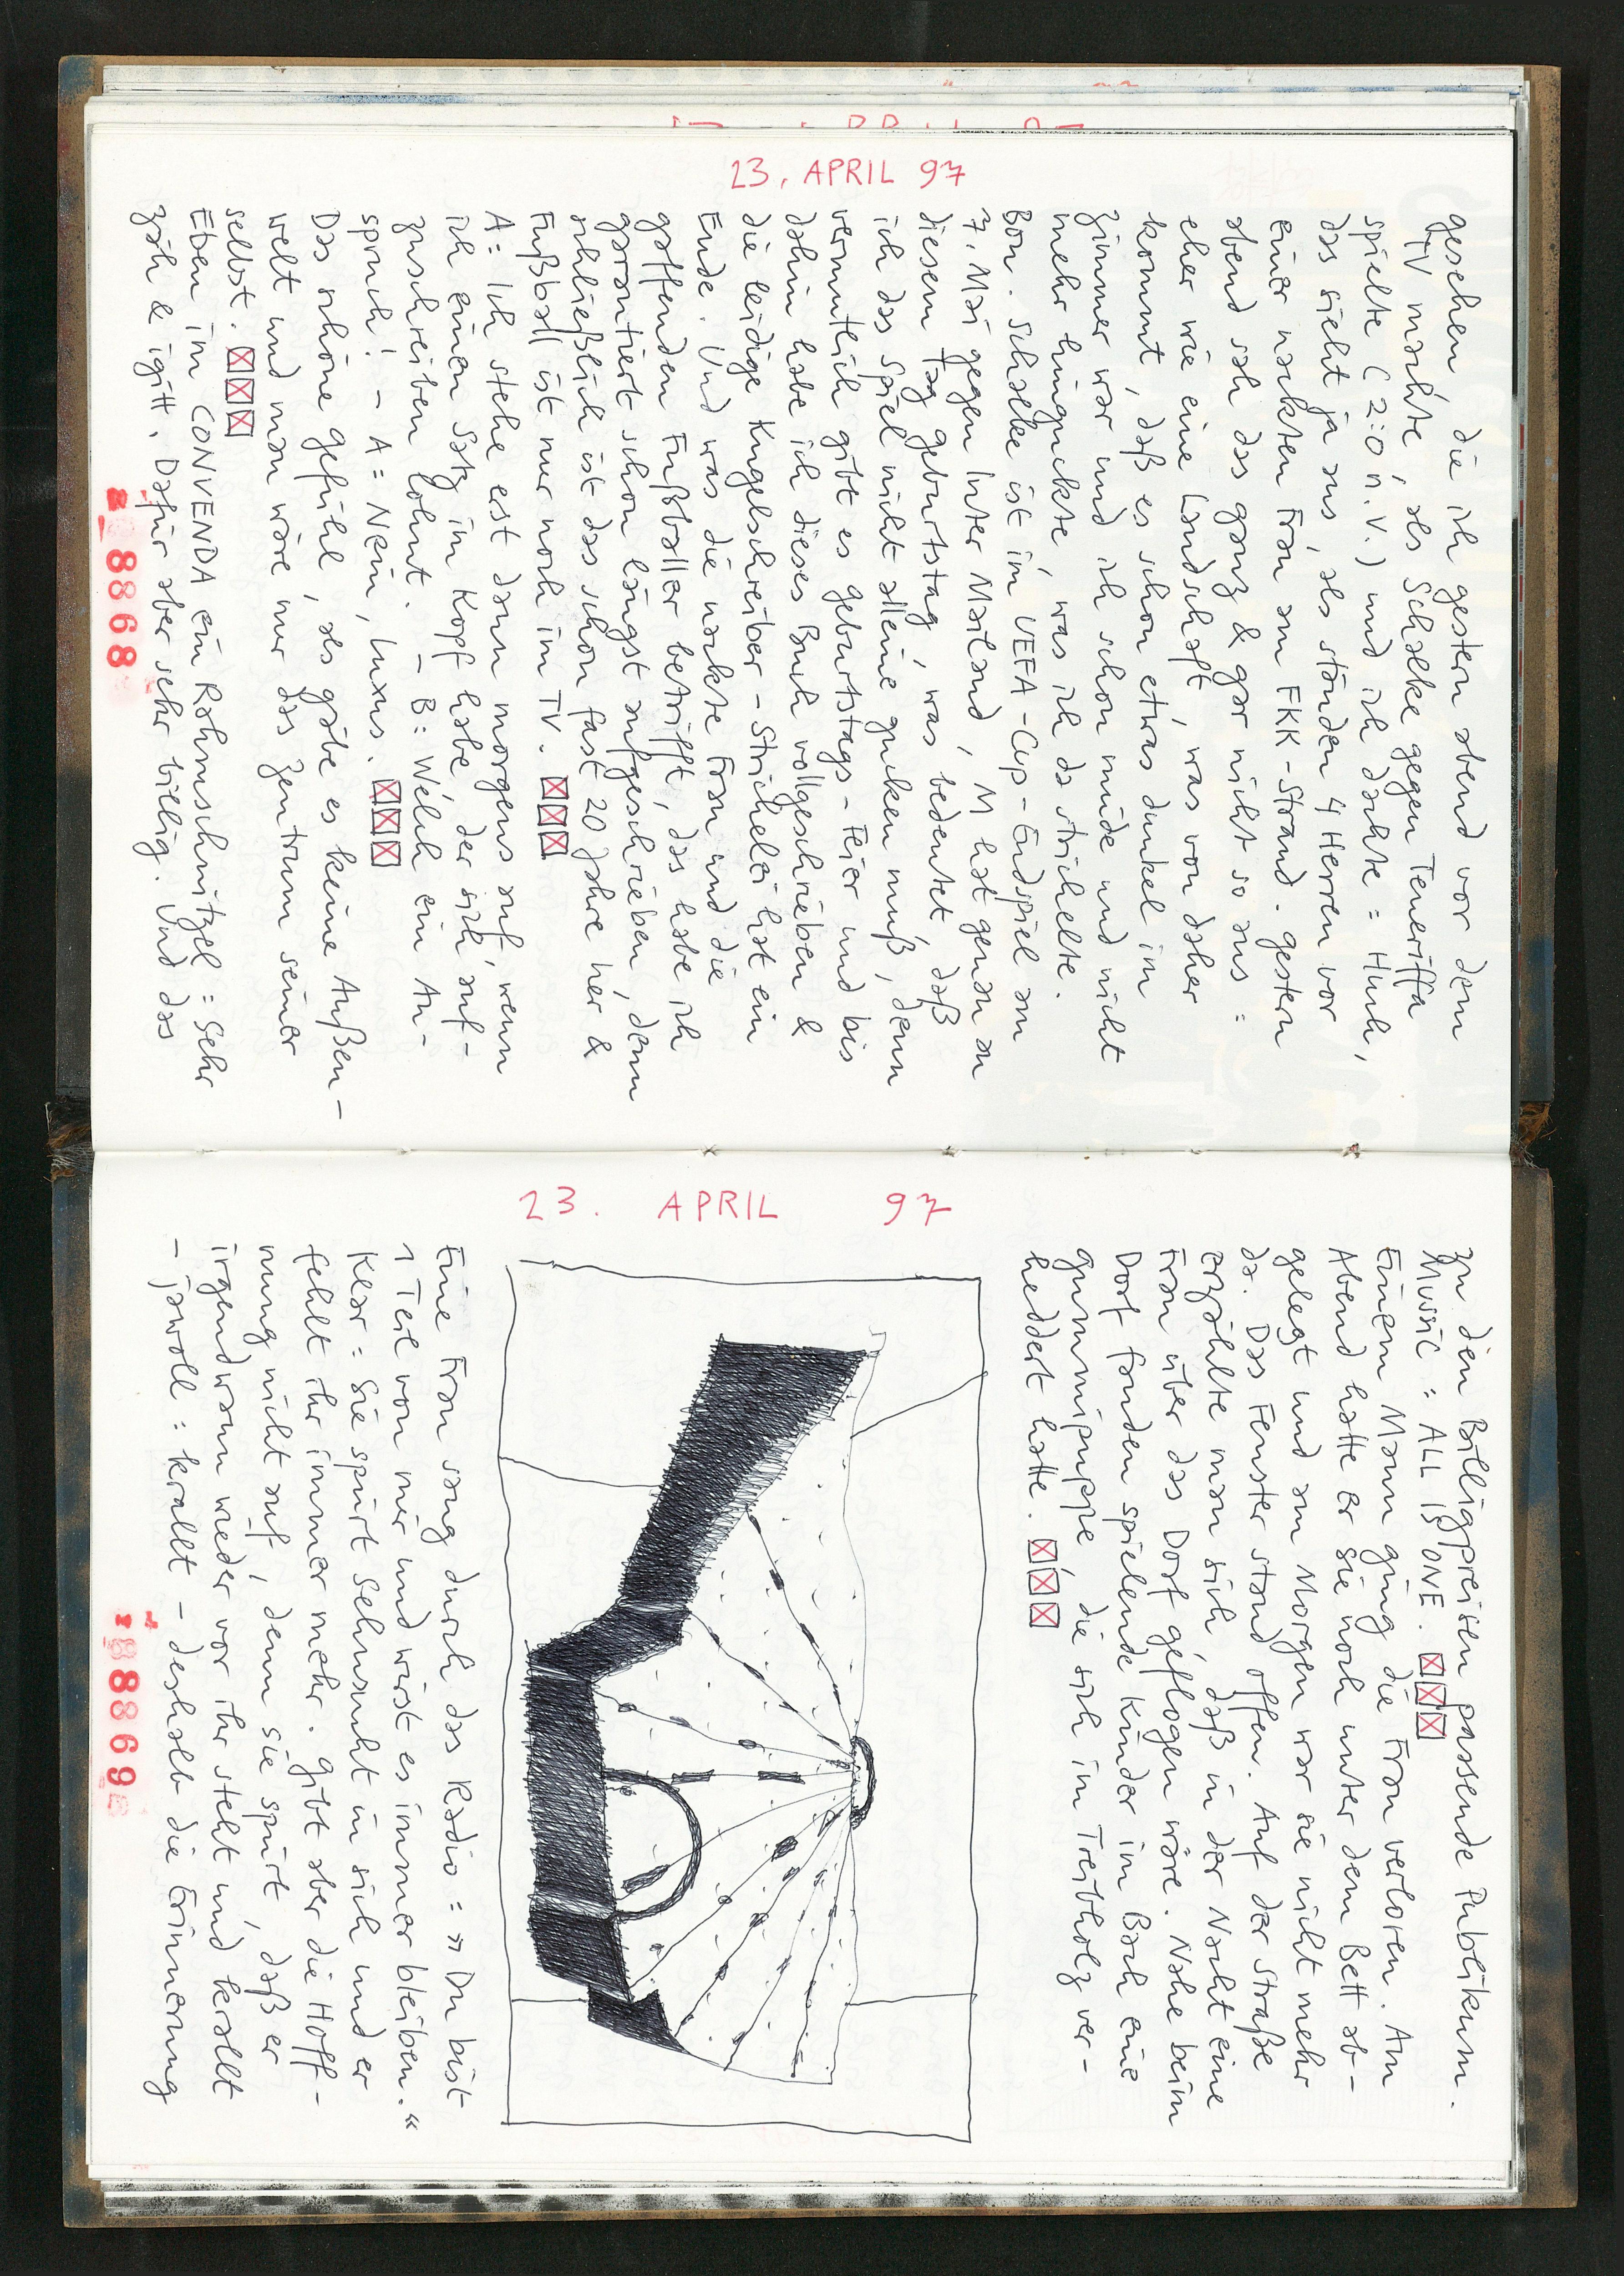 23. APRIL 97
gesehen, die ich gestern abend vor dem
TV machte, als Schalke gegen Teneriffa
spielte (2:0 n.V.) und ich dachte: Huch,
das sieht ja aus, als ständen 4 Herren vor
einer nackten Frau am FKK-Strand. Gestern
abend sah das ganz & gar nicht so aus:
eher wie eine Landschaft, was von daher
kommt, daß es schon etwas dunkel im
Zimmer war und ich schon müde und nicht
mehr hinguckte, was ich da strichelte.
Bon. Schalke ist im UEFA-Cup-Endspiel am
7. Mai gegen Inter Mailand, M hat genau an
diesem Tag Geburtstag, was bedeutet, daß
ich das Spiel nicht alleine gucken muß, denn
vermutlich gibt es Geburtstags-Feier und bis
dahin habe ich dieses Buch vollgeschrieben &
die leidige Kugelschreiber-Strichelei hat ein
Ende. Und was die nackte Frau und die
gaffenden Fußballer betrifft, das habe ich
garantiert schon längst aufgeschrieben, denn
schließlich ist das schon fast 20 Jahre her &
Fußball ist nur noch im TV.
A: Ich stehe erst dann morgens auf, wenn
ich einen Satz im Kopf habe, der sich auf-
zuschreiben lohnt. – B: Welch ein An-
spruch! – A: Nein, Luxus.
Das schöne Gefühl, als gäbe es keine Außen-
welt und man wäre nur das Zentrum seiner
selbst.
Eben im CONVENDA ein Rahmschnitzel: Sehr
zäh & igitt. Dafür aber sehr billig. Und das
8868
23. APRIL 97
zu den Billigpreisen passende Publikum.
Music: ALL IS ONE.
Einem Mann ging die Frau verloren. Am
Abend hatte er sie noch unter dem Bett ab-
gelegt und am Morgen war sie nicht mehr
da. Das Fenster stand offen. Auf der Straße
erzählte man sich, daß in der Nacht eine
Frau über das Dorf geflogen wäre. Nahe beim
Dorf fanden spielende Kinder im Bach eine
Gummipuppe, die sich im Treibholz ver-
heddert hatte.
Eine Frau sang durch das Radio: »Du bist
1 Teil von mir und wirst es immer bleiben.«
Klar: Sie spürt Sehnsucht in sich und er
fehlt ihr immer mehr. Gibt aber die Hoff-
nung nicht auf, denn sie spürt, daß er
irgendwann wieder vor ihr steht und krallt
– jawoll: krallt – deshalb die Erinnerung
8869